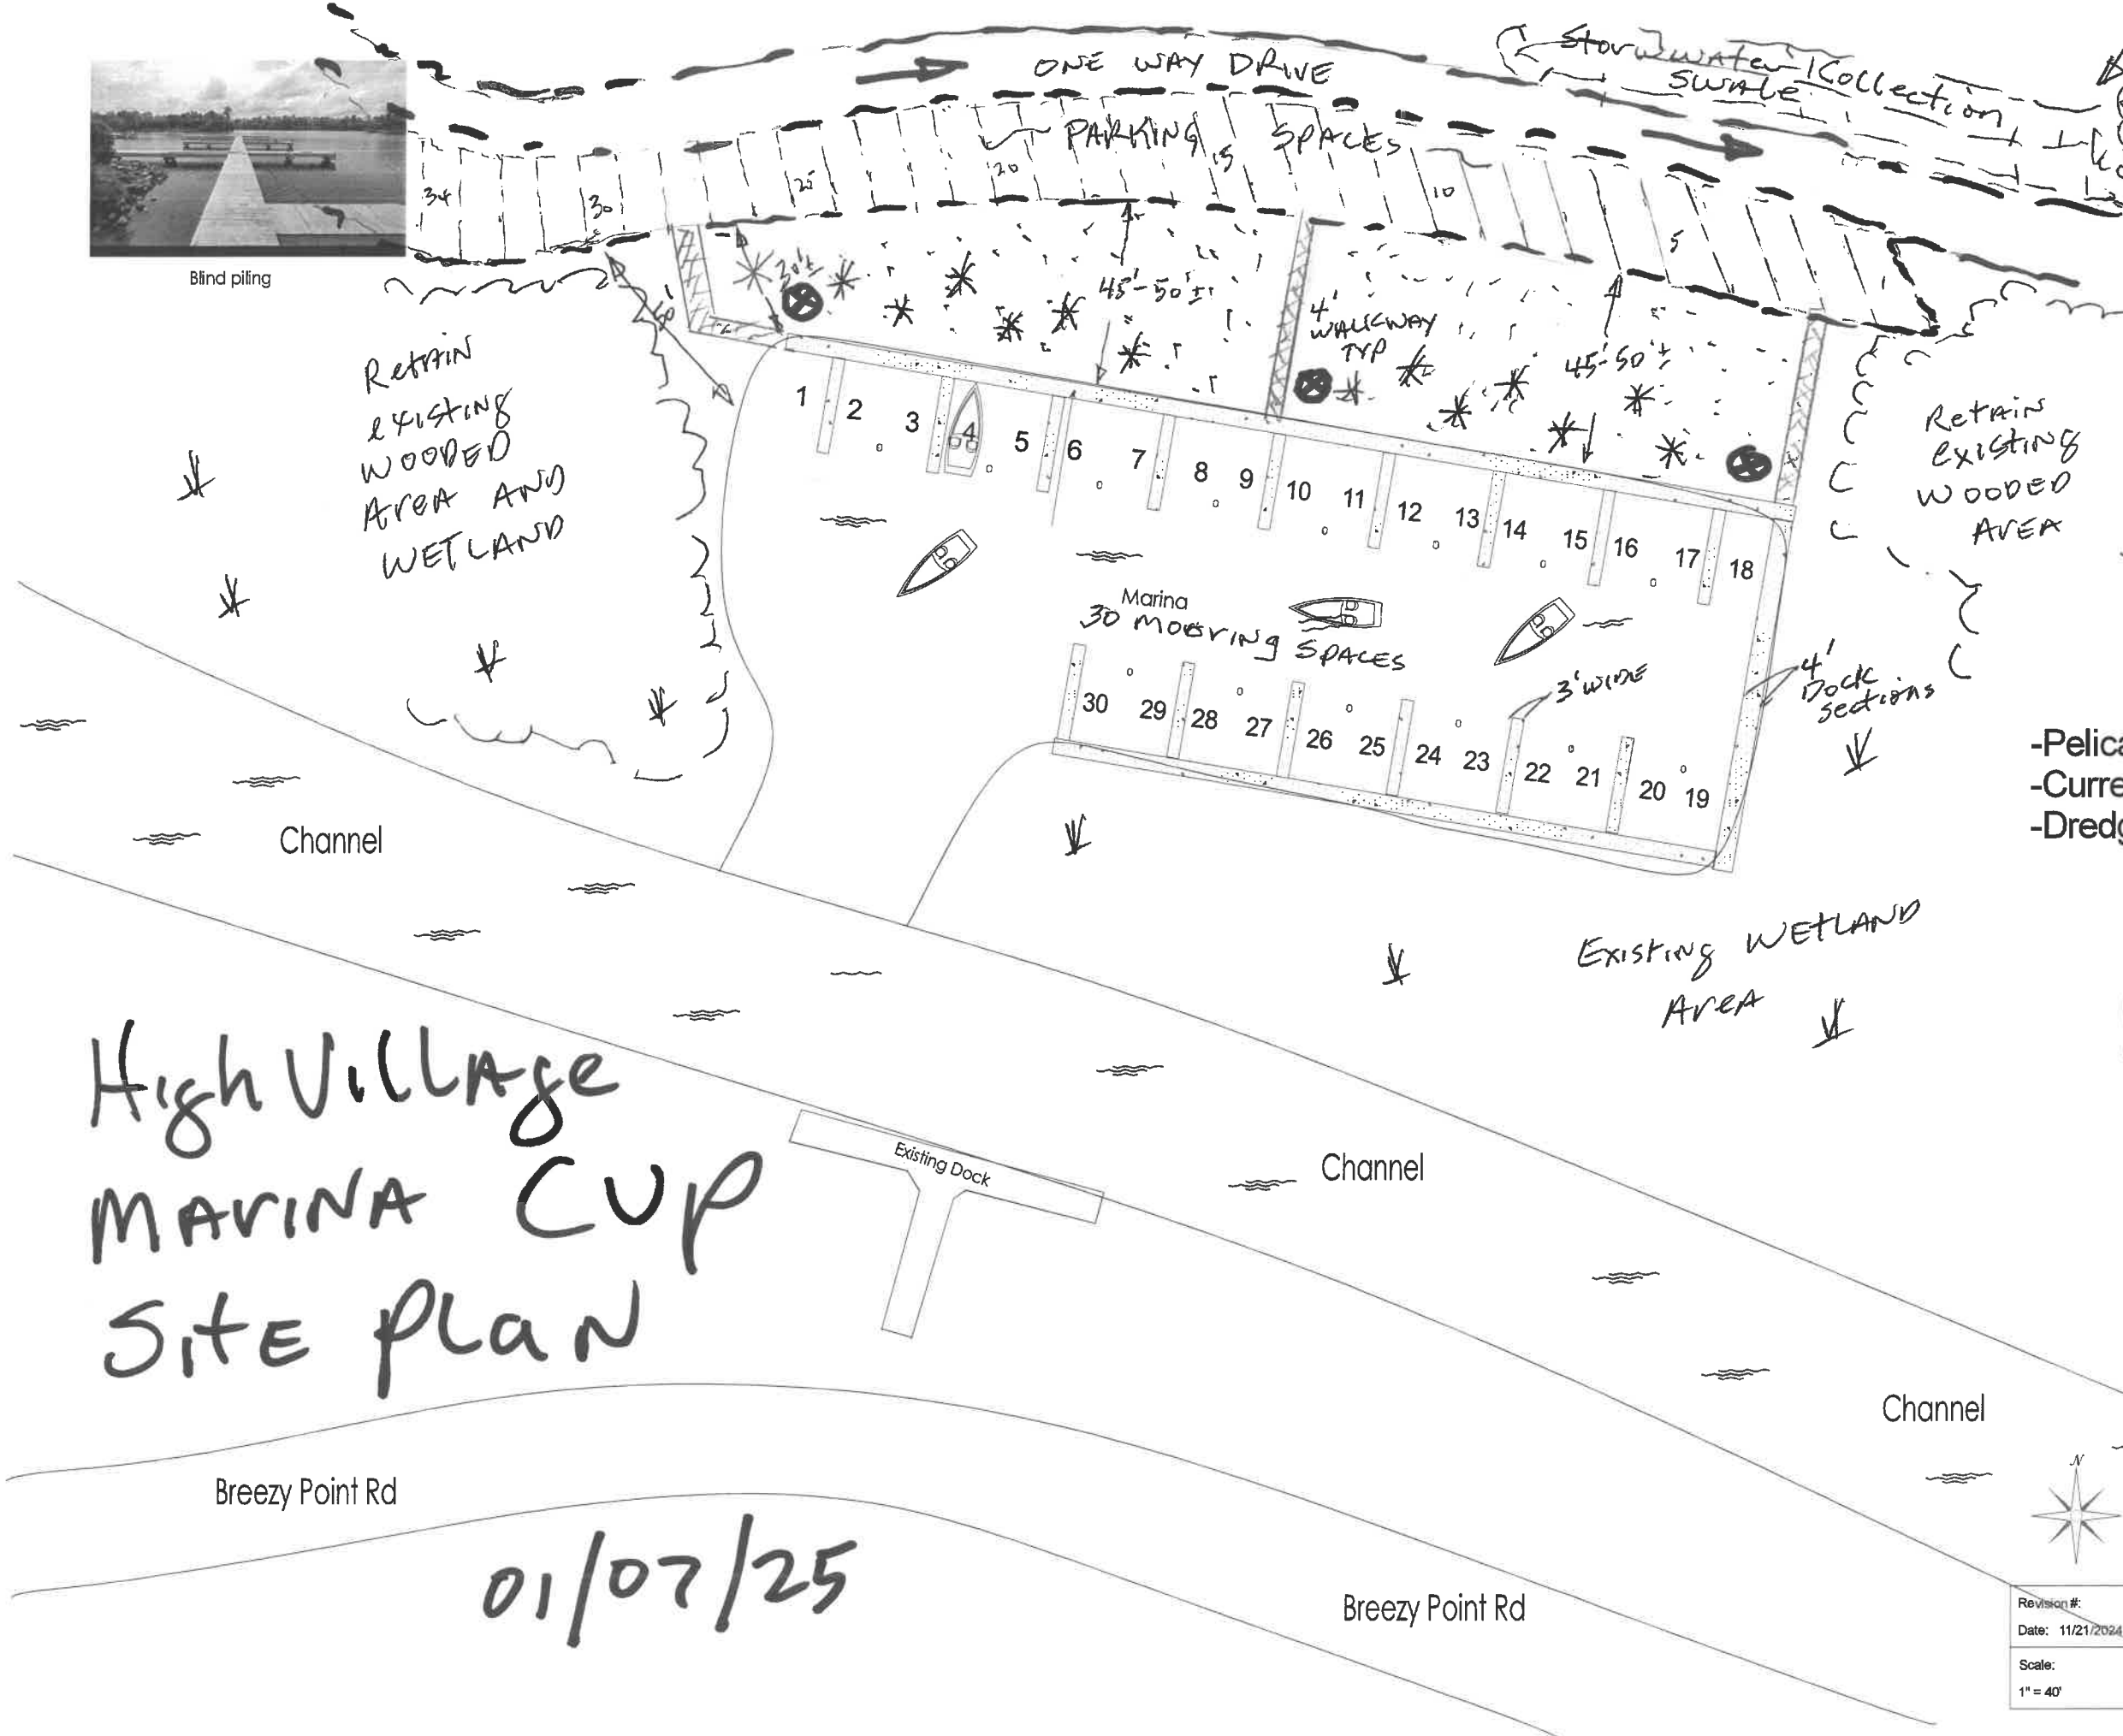 ONE WAY DRIVE
Stormwater Collection
SWALE
PARKING SPACES
34
30
25
20
15
10
5
Blind piling
50'
30'±
45'-50'±
4'
WALKWAY
TYP
45'-50'±
Retain
existing
WOODED
Area AND
WETLAND
Retain
existing
WOODED
Area
1
2
3
4
5
6
7
8
9
10
11
12
13
14
15
16
17
18
Marina
30 Mooring Spaces
3' WIDE
4'
Dock
sections
30
29
28
27
26
25
24
23
22
21
20
19
-Pelica
-Curre
-Dredg
Channel
Existing WETLAND
Area
High Village
Marina CUP
Site Plan
Existing Dock
Channel
Channel
N
Breezy Point Rd
01/07/25
Breezy Point Rd
Revision #:
Date: 11/21/2024
Scale:
1" = 40'